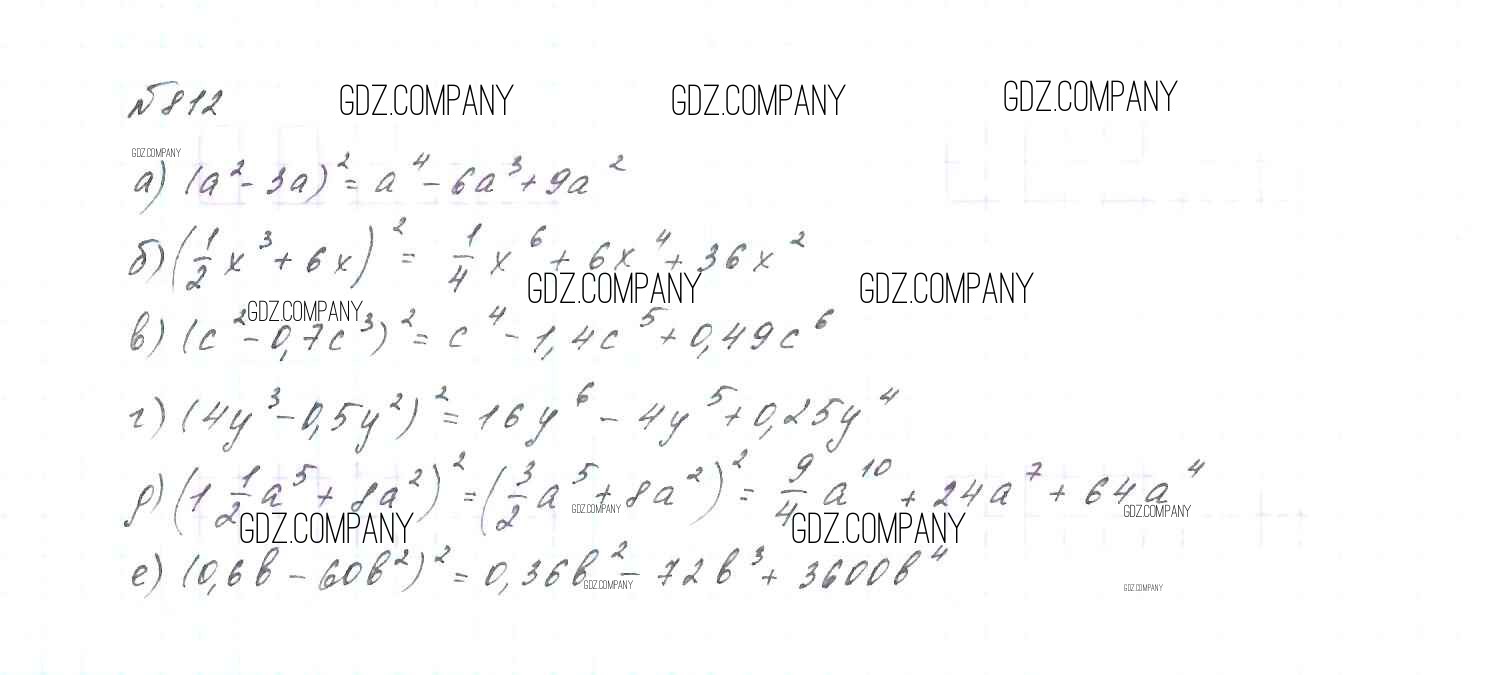 №812 GDZ.COMPANY GDZ.COMPANY GDZ.COMPANY
GDZ.COMPANY
а) (a² - 3a)² = a⁴ - 6a³ + 9a²
б) (1/2 x³ + 6x)² = 1/4 x⁶ + 6x⁴ + 36x²
GDZ.COMPANY GDZ.COMPANY
GDZ.COMPANY
в) (c² - 0,7c³)² = c⁴ - 1,4c⁵ + 0,49c⁶
г) (4y³ - 0,5y²)² = 16y⁶ - 4y⁵ + 0,25y⁴
д) (1 1/2 a⁵ + 8a²)² = (3/2 a⁵ + 8a²)² = 9/4 a¹⁰ + 24a⁷ + 64a⁴
GDZ.COMPANY GDZ.COMPANY
GDZ.COMPANY GDZ.COMPANY
е) (0,6b - 60b²)² = 0,36b² - 72b³ + 3600b⁴
GDZ.COMPANY GDZ.COMPANY